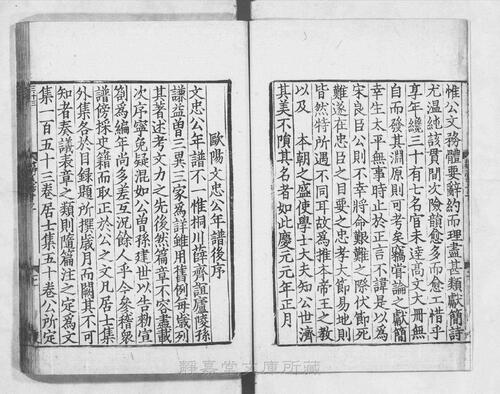 惟公文務體要辭約而理盡甚類獻簡詩
尤溫純該貫間次險韻愈多而愈工惜乎
享年纔三十有七名官未達高文大冊無
自而發其淵原則可考矣竊嘗論之獻簡
幸生太平無事時止於正言不諱是以為
宋良臣公則不幸將命艱難之際伏節死
難遂在忠臣之目要之忠孝大節易地則
皆然特所遇不同耳故為推本帝王之教
以及　本朝之盛使學士大夫知公世濟
其美不隕其名者如此慶元元年正月
歐陽文忠公年譜後序
文忠公年譜不一惟桐川薛齊誼廬陵孫
謙益曾三異三家為詳雖用舊例每歲列
其著述考文力之先後然篇章不容盡載
次序寧免疑混如公曾孫建世以告勑宣
劄為編年尚多差互況餘人乎今參稽衆
譜傍採史籍而取正於公之文凡居士集
外集各於目録題所撰歲月而闕其不可
知者奏議表章之類則隨篇注之定為文
集一百五十三卷居士集五十卷公所定
靜嘉堂文庫所藏